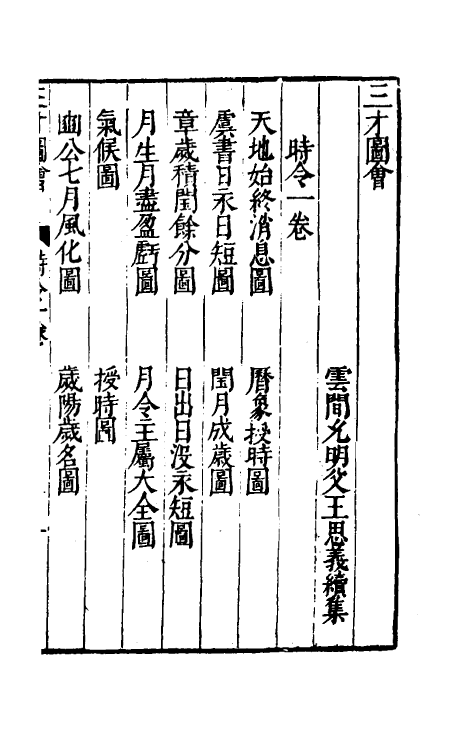 三才圖會
雲間允明父王思義續集
時令一卷
天地始終消息圖　曆象授時圖
虞書日永日短圖　閏月成歲圖
章歲積閏餘分圖　日出日沒永短圖
月生月盡盈虧圖　月令主屬大全圖
氣候圖　授時圖
豳公七月風化圖　歲陽歲名圖
三才圖會　時令一卷　一